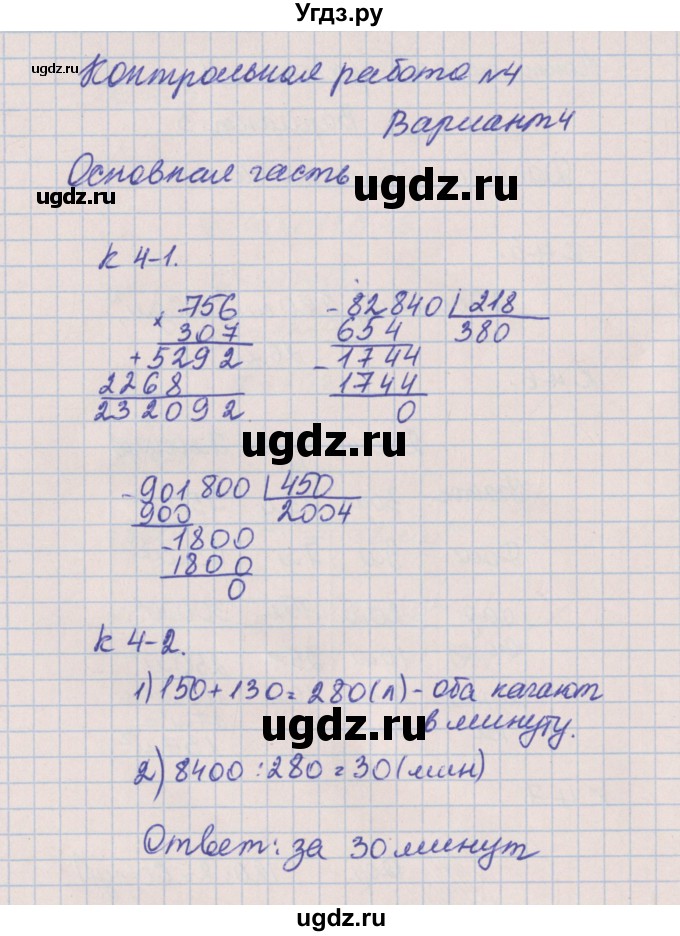 Угдз.ру
ugdz.ru
Контрольная работа №4
Вариант 4
Основная часть
ugdz.ru
ugdz.ru
К 4-1.
756
× 307
+ 5292
2268
232092
- 82840 | 218
654 380
- 1744
1744
0
ugdz.ru
- 901800 | 450
900 2004
- 1800
1800
0
К 4-2.
1) 150 + 130 = 280 (л) - оба качают
в минуту.
ugdz.ru
2) 8400 : 280 = 30 (мин)
Ответ: за 30 минут
ugdz.ru